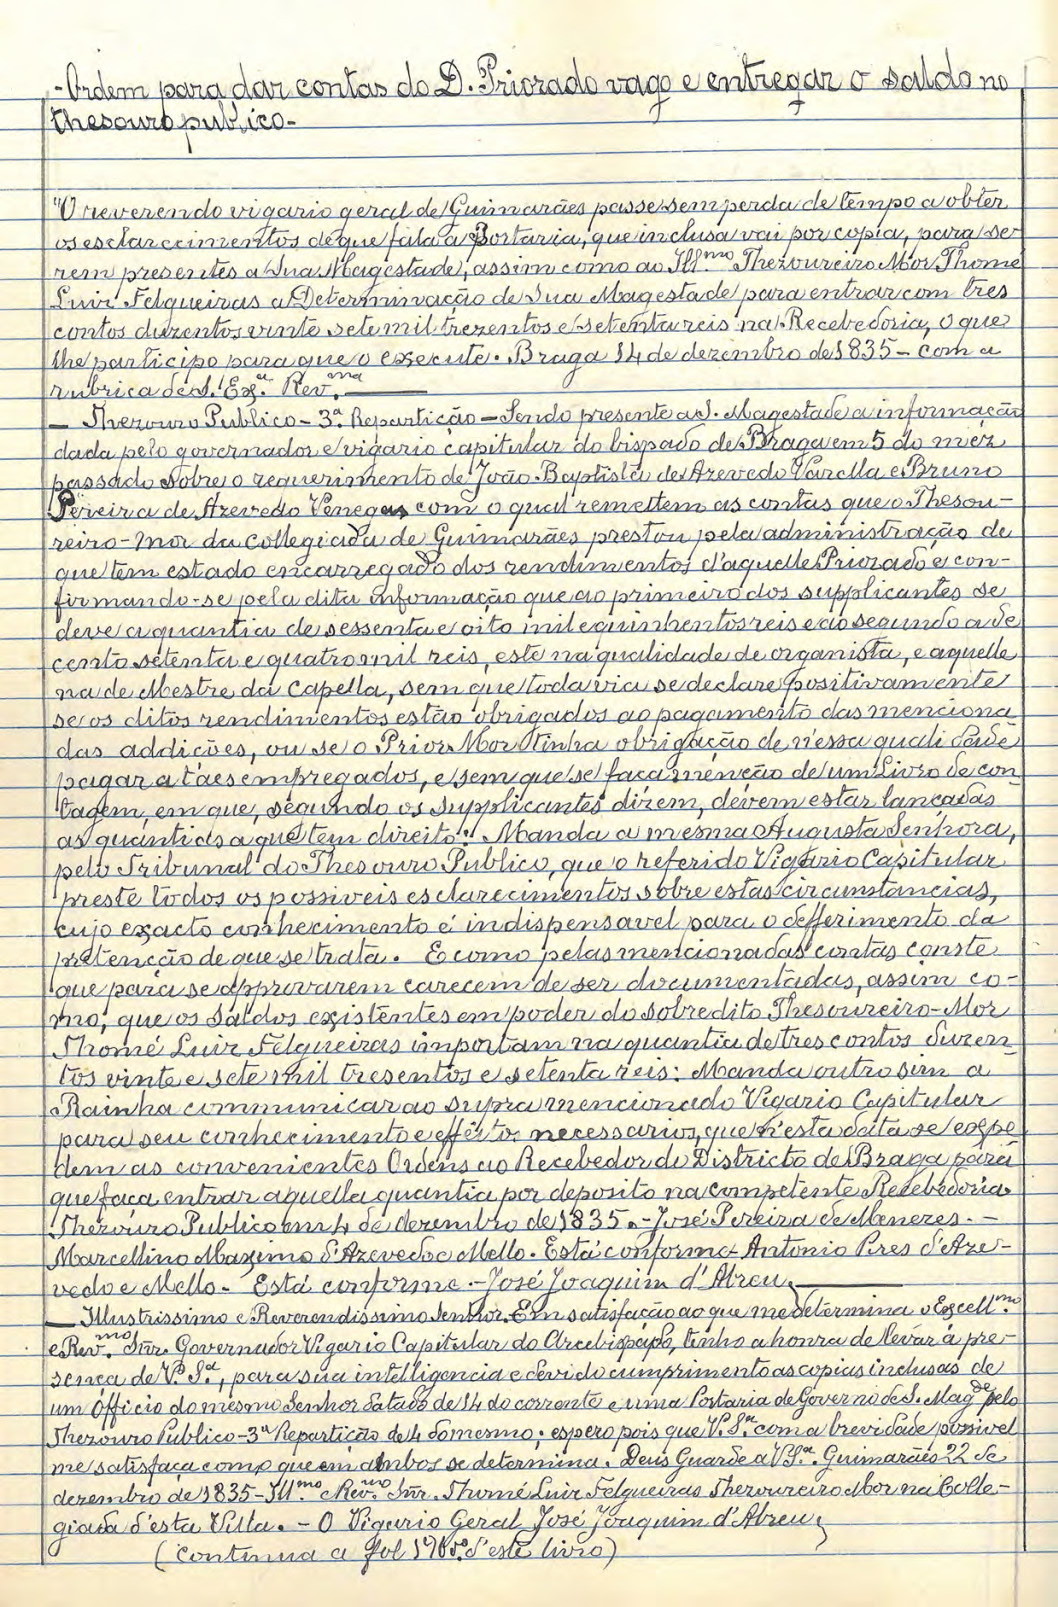 -Ordem para dar contas do D. Priorado vago e entregar o saldo no
thesouro publico-
"O reverendo vigario geral de Guimarães passe sem perda de tempo a obter
os esclarecimentos de que fala a Portaria, que inclusa vai por copia, para se-
rem presentes a Sua Magestade, assim como ao Ill.mo Thezoureiro Mór Thomé
Luiz Felgueiras a Determinação de Sua Magestade para entrar com tres
contos duzentos vinte sete mil trezentos e setenta reis na Recebedoria, o que
lhe participo para que o execute. Braga 14 de dezembro de 1835 - com a
rubrica de S. Ex.a Rev.ma
- Thezouro Publico - 3.a Repartição - Sendo presente a S. Magestade a informação
dada pelo governador e vigario capitular do bispado de Braga em 5 do mez
passado sobre o requerimento de João Baptista de Azevedo Varella e Bruno
Pereira de Azevedo Venegas com o qual remettem as contas que o Thesou-
reiro-mor da collegiada de Guimarães prestou pela administração de
que tem estado encarregado dos rendimentos d'aquelle Priorado e con-
firmando-se pela dita informação que ao primeiro dos supplicantes se
deve a quantia de sessenta e oito mil e quinhentos reis e ao segundo a de
cento setenta e quatro mil reis, este na qualidade de organista, e aquelle
na de Mestre da Capella, sem que todavia se declare positivamente
se os ditos rendimentos estão obrigados ao pagamento das menciona
das addições, ou se o Prior Mor tinha obrigação de n'essa qualidade
pagar a taes empregados, e sem que se faça menção de um Livro de con
tagem, em que, segundo os supplicantes dizem, devem estar lançadas
as quantias a que tem direito: Manda a mesma Augusta Senhora,
pelo Tribunal do Thesouro Publico, que o referido Vigario Capitular
preste todos os possiveis esclarecimentos sobre estas circumstancias,
cujo exacto conhecimento é indispensavel para o defferimento da
pretenção de que se trata. E como pelas mencionadas contas conste
que para se approvarem carecem de ser documentadas, assim co-
mo, que os saldos existentes em poder do sobredito Thesoureiro-Mor
Thomé Luiz Felgueiras importam na quantia de tres contos duzen-
tos vinte e sete mil tresentos e setenta reis: Manda outro sim a
Rainha communicar ao supra mencionado Vigario Capitular
para seu conhecimento e effeitos necessarios, que n'esta data se expe
dem as convenientes Ordens ao Recebedor do Districto de Braga para
que faça entrar aquella quantia por deposito na competente Recebedoria.
Thezouro Publico em 4 de dezembro de 1835. - José Pereira de Menezes. -
Marcellino Maximo d'Azevedo e Mello. Está conforme - Antonio Pires d'Aze-
vedo e Mello. - Está conforme. - José Joaquim d'Abreu,
- Illustrissimo e Reverendissimo Senhor. Em satisfação ao que me determina o Excell.mo
e Rev.mo Snr. Governador Vigario Capitular do Arcebispado, tenho a honra de levar á pre-
sença de V. S.a, para sua intelligencia e devido cumprimento as copias inclusas de
um Officio do mesmo Senhor datado de 14 do corrente e uma Portaria de Governo de S. Mag.de pelo
Thezouro Publico - 3.a Repartição de 4 do mesmo; espero pois que V. S.a com a brevidade possivel
me satisfaça como que em ambos se determina. Deus Guarde a V. S.a. Guimarães 22 de
dezembro de 1835 - Ill.mo e Rev.mo Snr. Thomé Luiz Felgueiras Thezoureiro Mor na Colle-
giada d'esta Villa. - O Vigario Geral José Joaquim d'Abreu,
(Continua a fol d'este livro)